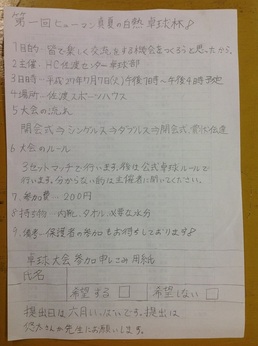 第一回ヒューマン真夏の白熱卓球杯
1 目的 皆で楽しく交流をする機会をつくろうと思ったから。
2 主催 HC佐渡センター卓球部
3 日時 平成27年7月7日(火)午後1時〜午後4時予定
4 場所 佐渡スポーツハウス
5 大会の流れ
開会式⇒シングルス⇒ダブルス⇒閉会式
6 大会のルール
3セットマッチで行います。
行います。分からない時は主催者に聞いてください。
7. 参加費 200円
8 持ち物 内靴 タオル 必要な水分
9. 備考 保護者の参加もお待ちしております
卓球大会参加申しこみ用紙
氏名
希望する □ 希望しない □
提出日は六月いっぱいです。提出は
先生にお願いします。